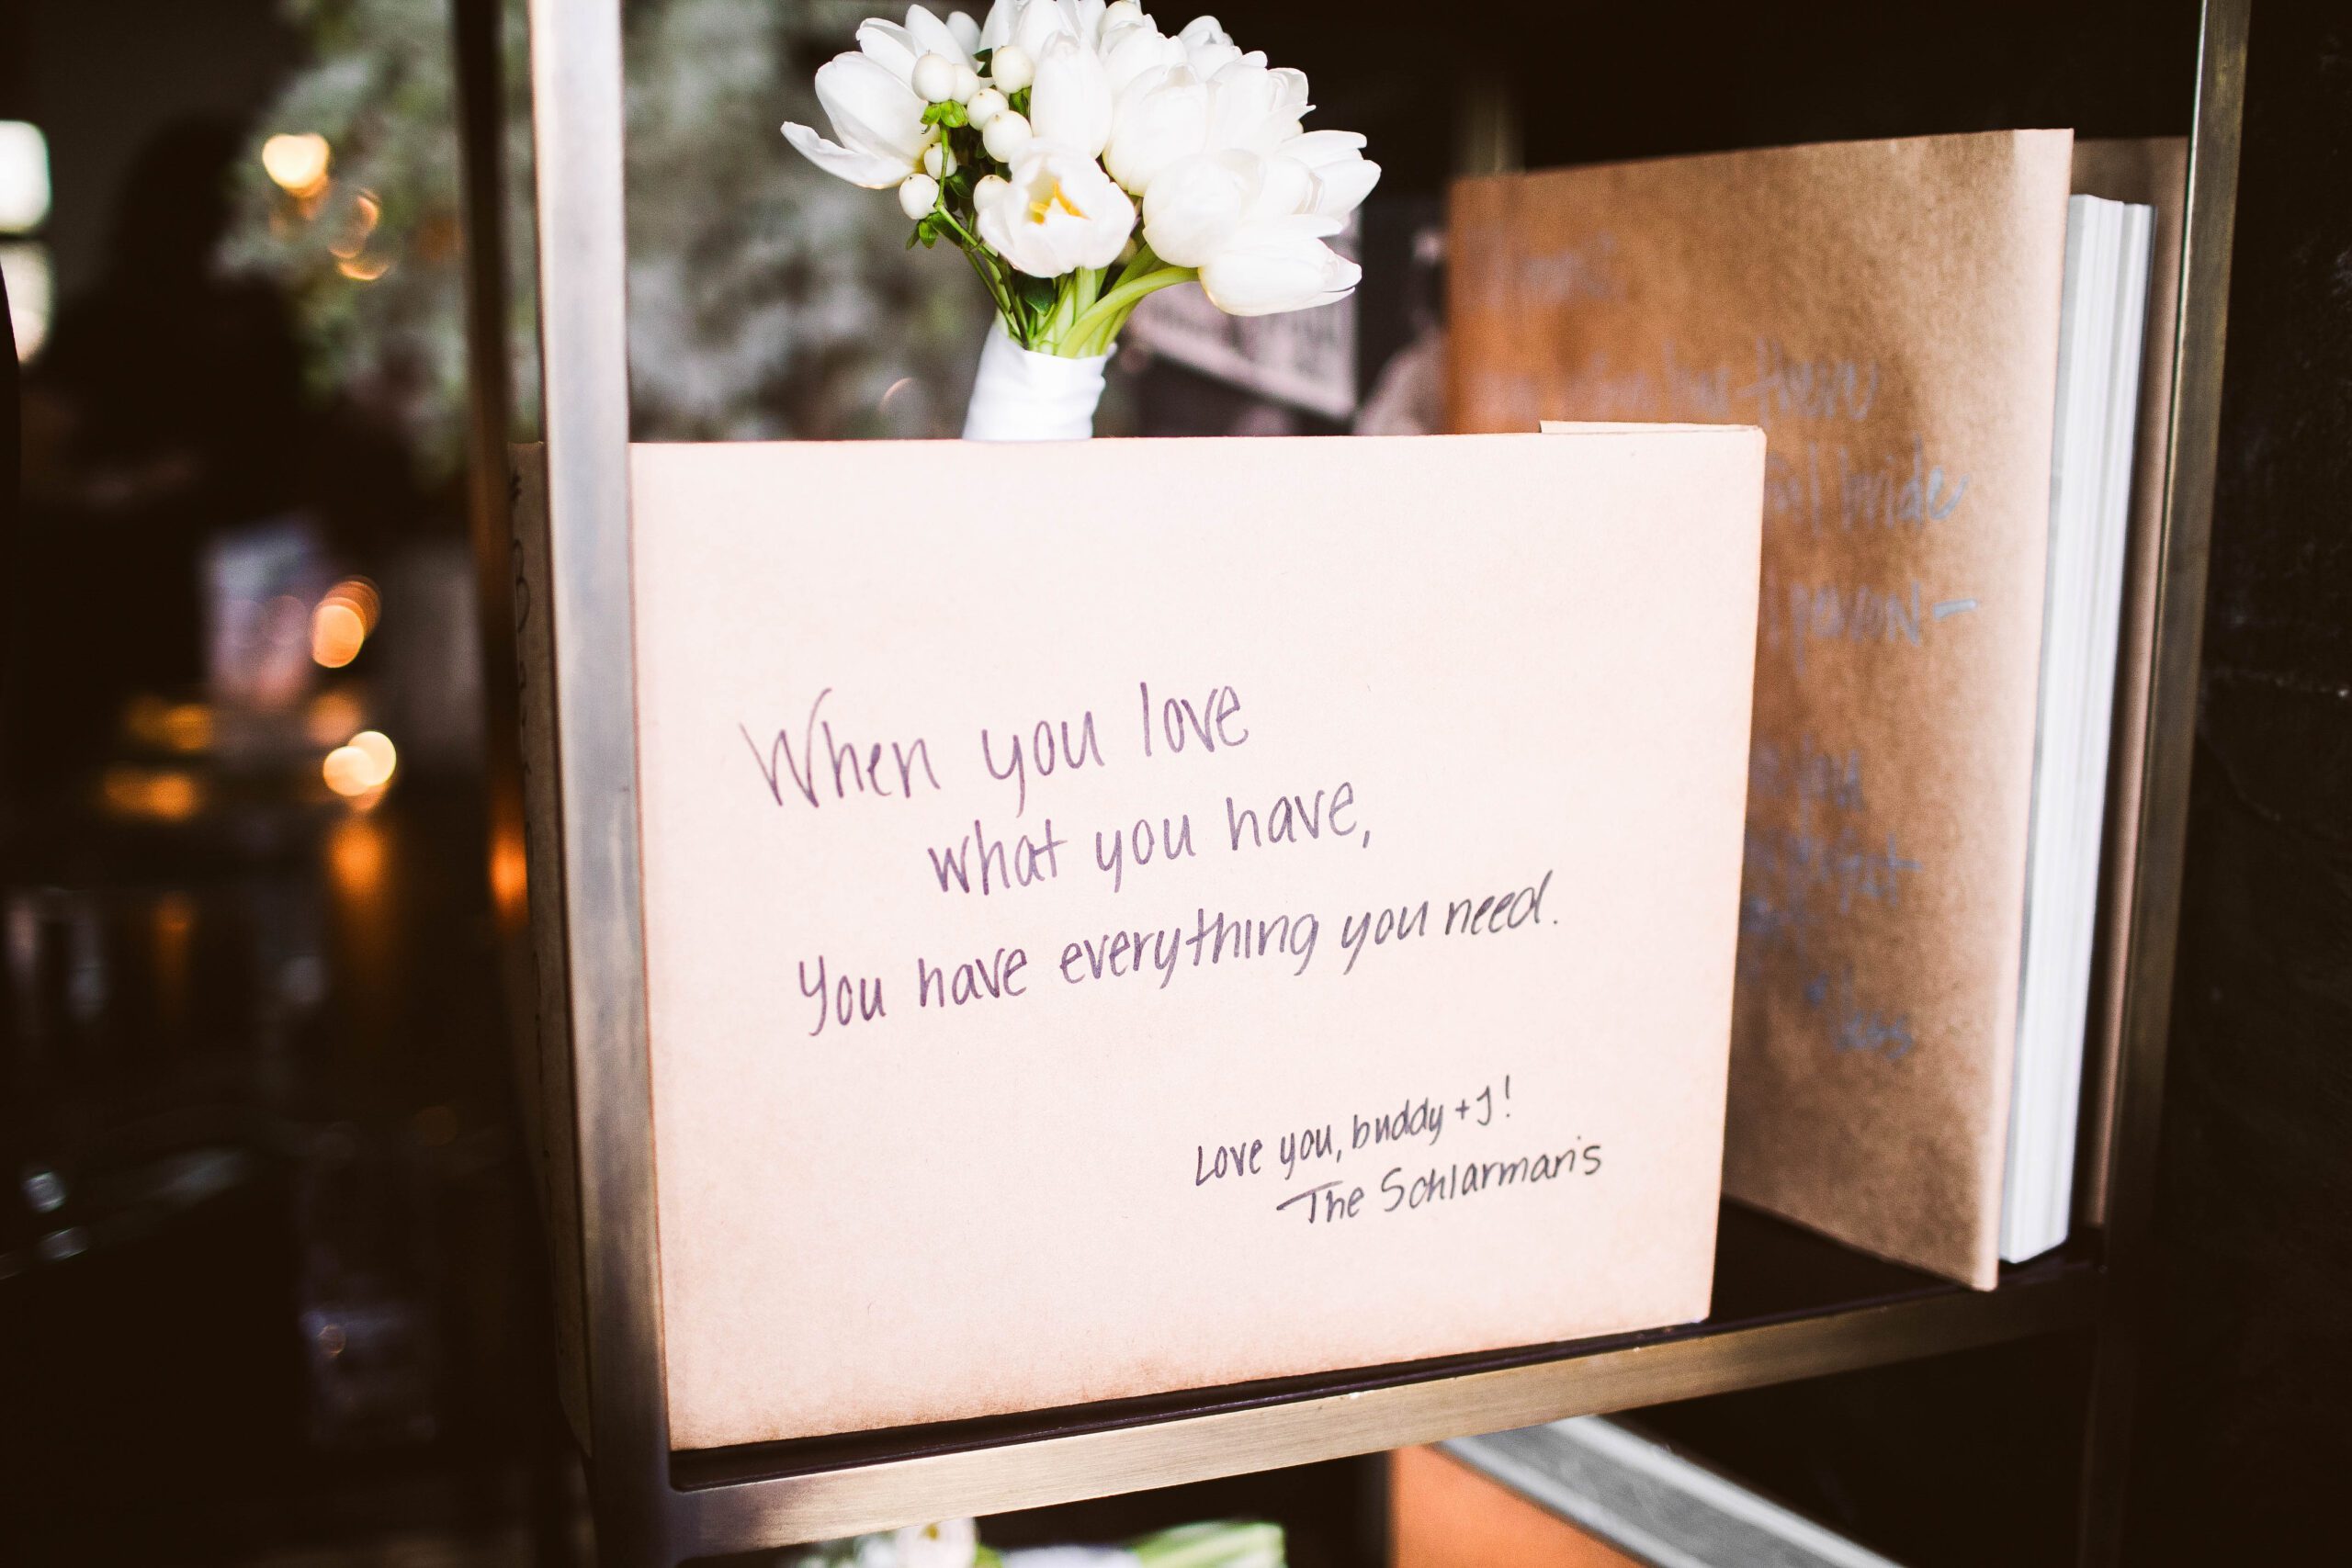 When you love
what you have,
You have everything you need.
Love you, buddy + J!
The Schlarman's
there
bride
person-
you